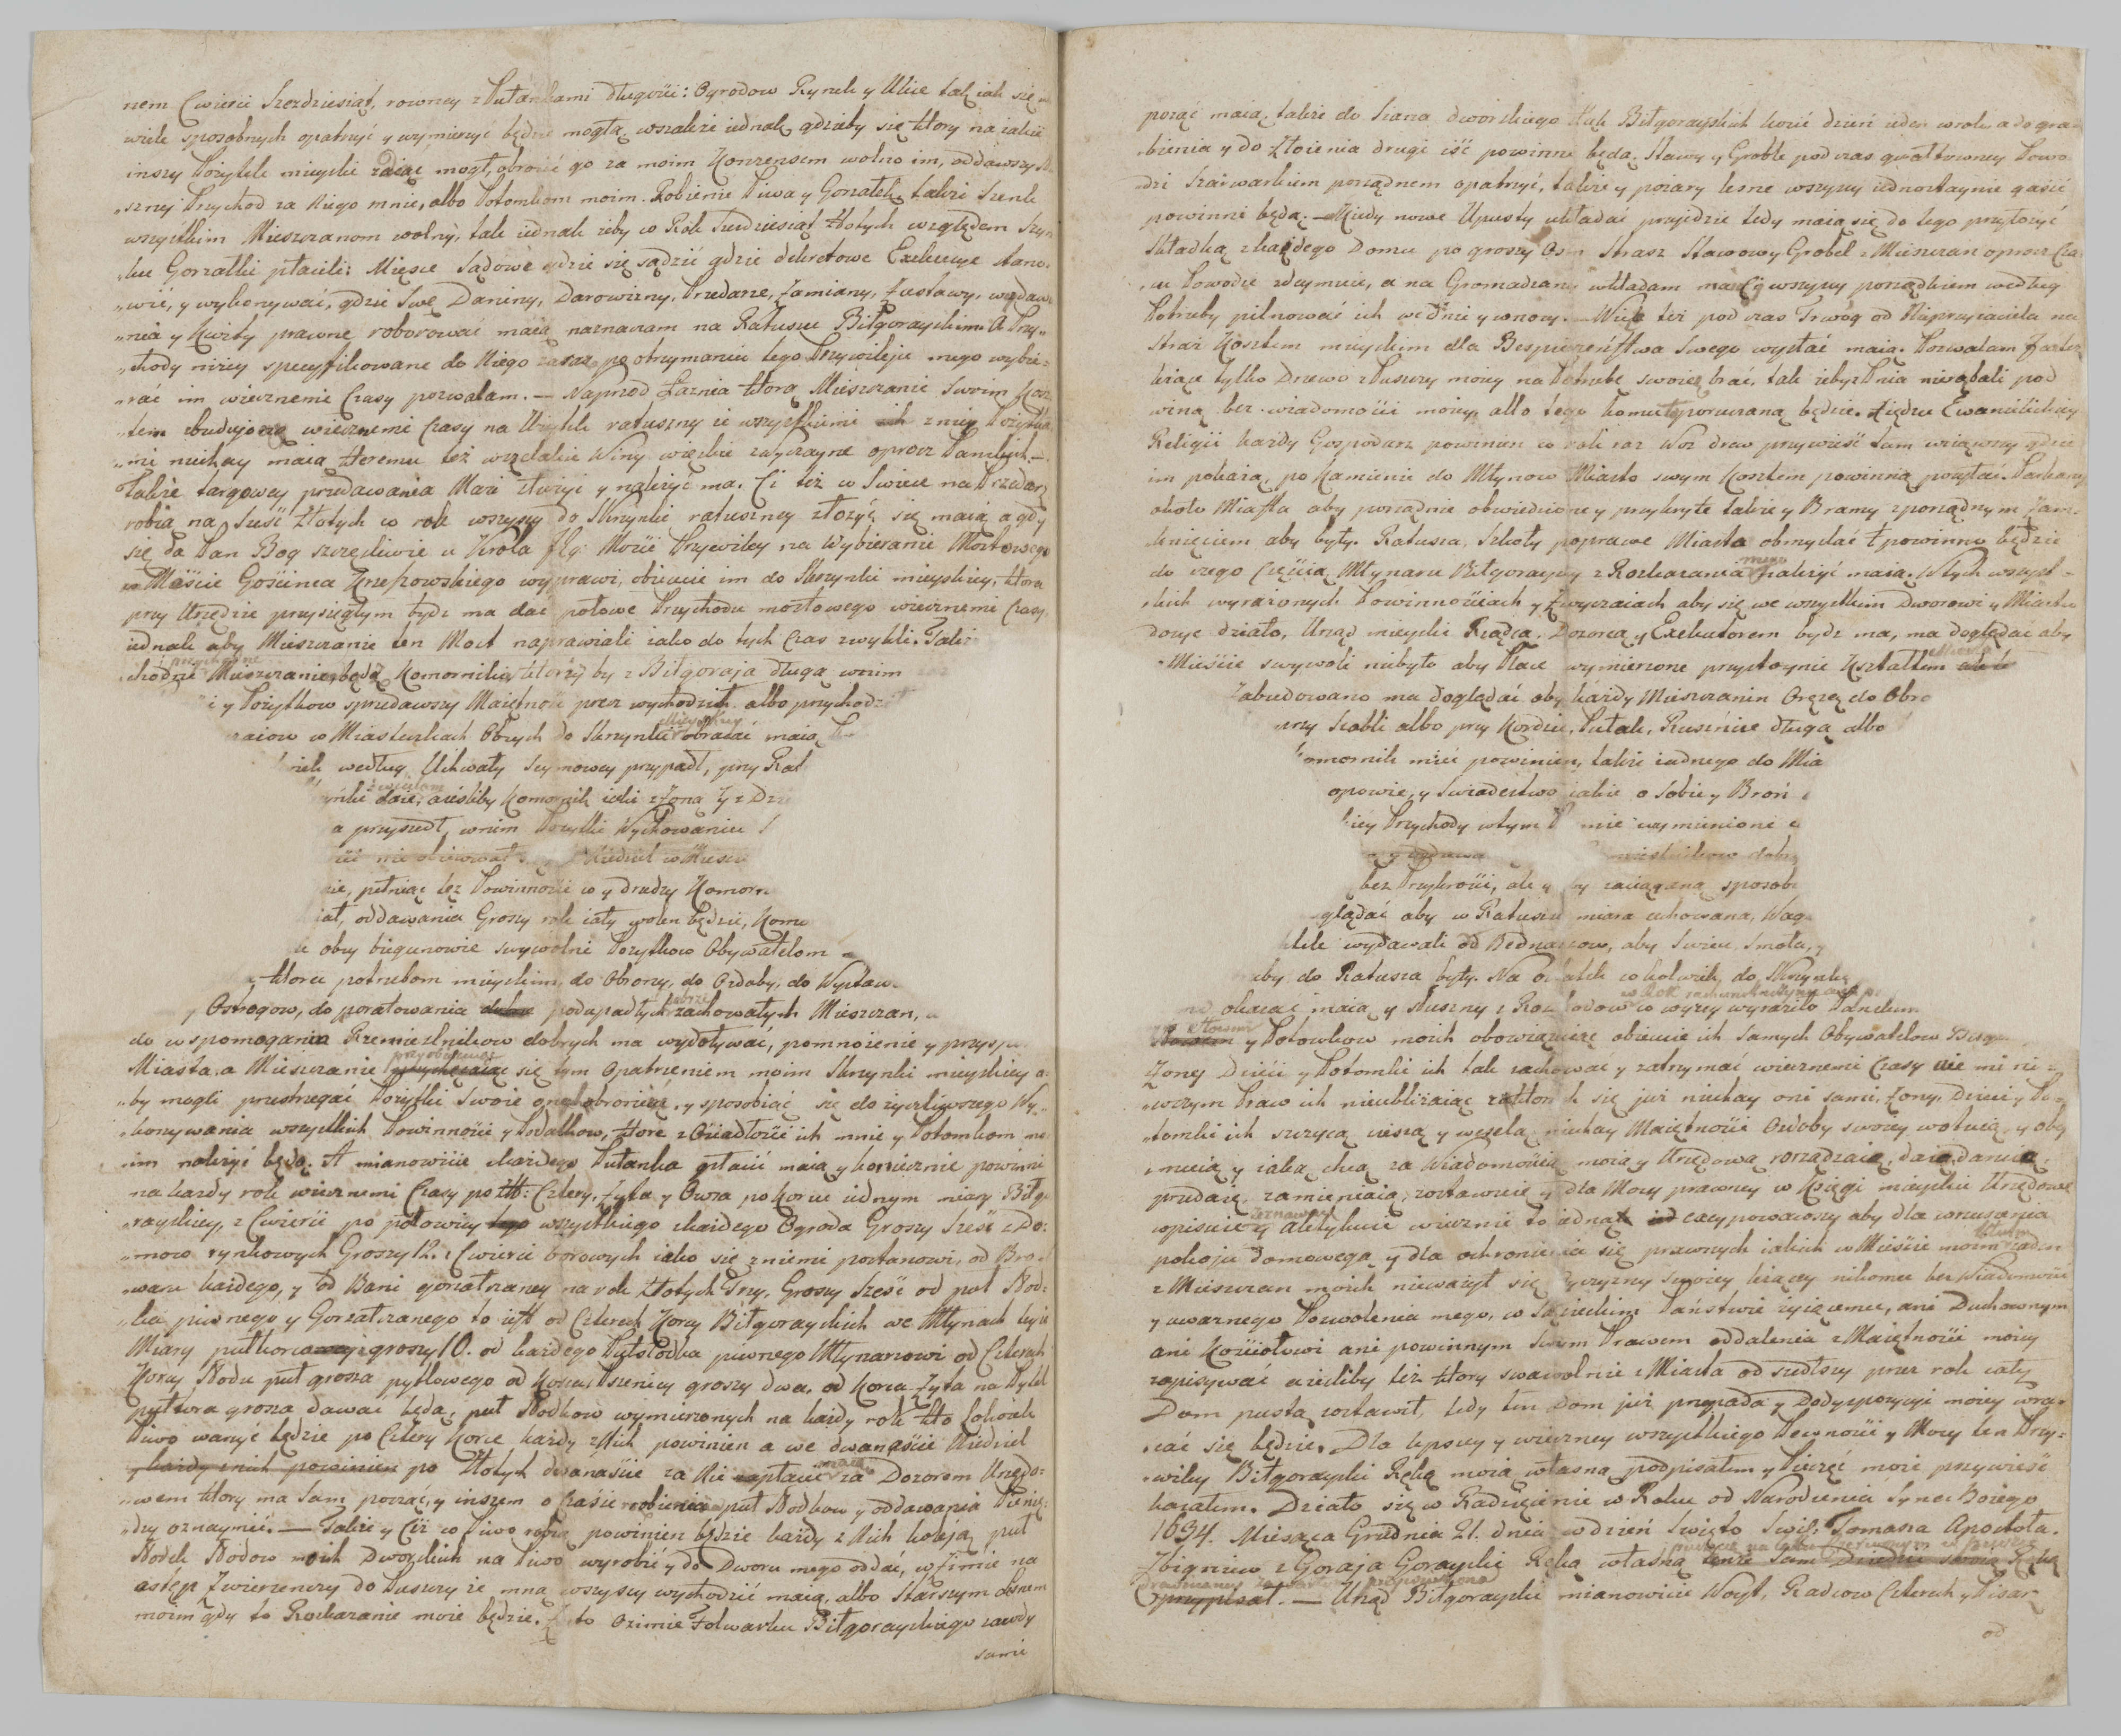 nem Cwierci Szezdziesiąt, rowney z Pułankami długości: Ogrodow Rynek y Ulice tak iak się
wiele sposobnych opatrzyć y wymierzyć będzie mogła, wszakże iednak gdzieby się ktory na iakie
inszy Pożytek mieyski zdać mogł, obrocić go za moim Konzensem wolno im, oddawszy
sznej Przychod za Niego mnie, albo Potomkom moim. Robienie Piwa y Gorzałek, także Szenk
wszystkim Mieszczanom wolny, tak iednak żeby w Rok Sześdziesiąt złotych względem Szyn
ku Gorzałki płacili: Mieysce Sądowe gdzie się sądzić gdzie dekretowe Exekucye stano„
„wić, y wykonywać, gdzie Swe Daniny, Darowizny, Przedarze, Zamiany, Zastawy,
„nia y Kwity prawne roborować maią naznaczam na Ratuszu Biłgorayskim. A Przy„
„chody niżey specyfikowane do Niego zaraz po otrzymaniu tego Przywileju mego wybie„
„rać im wiecznemi Czasy pozwalam. — Naprzod Łaznia ktorą Mieszczanie Swoim Kosz„
„tem zbuduią wiecznemi Czasy na Użytek ratuszny ze wszystkiemi z niey Pożytka„
„mi niechay maią ktoremu też wszelakie Winy więzkie zwyczayne oprocz Pańskich. —
Także targowey przedawania Mari służyć y należyć ma. Ci też co Swiece na Przedarz
robią na Sześć Złotych w rok wszyscy do Skrzynki ratuszney złożyć się maią a gdy
się da Pan Bog szczęśliwie u Krola Jłg: Mości Przywiley na Wybieranie Mostowego
w Mieście Gościńca Krzeszowskiego wyprawi, obiecuie im do Skrzynki mieyskiey, ktora
przy Urzędzie przysięgłym bydz ma dać połowe Przychodu mostowego wiecznemi Czasy
iednak aby Mieszczanie ten Most naprawiali iako do tych Czas zwykli. Takż
chodzie Mieszczanie będź Komornikiem, ktorzy by z Biłgoraja długą wnim
i y Pożytkow sprzedawszy Maiętność precz wychodzili albo przychodzi
zaiow w Miasteczkach Obcych do Skrzynki Mieyskiey obracać maią
wiek według Uchwały Seymowey przypadł, przy Rat
zynki daie, aiesliby Komornik iaki z Żoną y z Dzie
a przyszedł, wnim Pożytki Wychowaniu
ści nie obiecował Niedziel w Miesc
nie, pełniąc też Powinności co y drudzy Komorn
iał, oddawania Groszy rok cały wolen będzie, Komu
obcy biegunowie swywolni Pożytkow Obywatelom
ktora potrzebom mieyskim, do Obrony, do Ozdoby, do Wystaw
Ostrogow, do poratowania podupadłych dobrze zachowałych Mieszczan,
do wspomagania Rzemieslnikow dobrych ma wydotywać, pomnożenie y przyspo
Miasta, a Mieszczanie przysposabiaiąc się tym Opatrzeniem moim Skrzynki mieyskiey a„
„by mogli przestrzegać Pożytki Swoie onę obronieią, y sposobiać się do życzliwszego Wy„
„konywania wszystkich Powinności y Podatkow, ktore z Osiadłości ich mnie y Potomkom mo
im należyć będą. A mianowicie z każdego Pułanka płacić maią y koniecznie powinni
na każdy rok wiecznemi Czasy po zł: Cztery, Żyta y Owsa po korcu iednym miary Biłgo
„rayskiey, z Cwierci po połowicy wszystkiego z każdego Ogroda Groszy Sześć z Do:
„mow rynkowych Groszy 12. z Cwierci borowych iako się z niemi postanowi, od Bro
„waru każdego, y od Bani gorzałczaney na rok złotych Trzy. Groszy Sześć od puł Sło:
„du piwnego y Gorzałczanego to iest od Czterech Korcy Biłgorayskich we Młynach tych
Miary pułkorcowey groszy 10. od każdego Pułsłodka piwnego Młynarzowi od Czterech
Korcy Słodu puł grosza pytlowego od Korca Pszenicy groszy dwa, od Korca Żyta na Pytel
pułtora grosza dawać będą, puł Słodkow wymierzonych na każdy rok kto kolwiek
Piwo warzyć będzie po Cztery Korce każdy z Nich powinien a we dwanaście Niedziel
y każdy z nich powinien po Złotych dwanaście za Nie zapłacić maią za Dozorem Urzędo„
„wem ktory ma Sam począć, y inszem o Czasie robienia puł Słodkow y oddawania Pienię„
„dzy oznaymić. — Także y Ciż co Piwo robią powinien będzie każdy z Nich koleją puł
Słodek Słodow moich Dworskich na Piwo wyrobić y do Dworu mego oddać, w Zimie na
astęp Zwierzenczy do Puszczy ze mną wszyscy wychodzić maią, albo Starszym Lesnem
moim gdy to Rozkazanie moie będzie. Żyto Ozimie Folwarku Biłgorayskiego zawsdy
samie
począć maią, także do Siana dworskiego łąk Biłgorayskich kosić dzień ieden w roku a do gra
bienia y do złożenia drugi iść powinne będą. Stawy y Groble pod czas gwałtowney Powo
dzi Szarwarkiem porządnem opatrzyć, także y pożary lesne wszyscy iednostaynie gasić
powinni będą. — Kiedy nowe Upusty układać przyidzie tedy maią się do tego przyłożyć
Składką z każdego Domu po groszy Osm Strasz Stawowy Grobel z Mieszczan oprocz Cza
su Powodzi zdeymuie, a na Gromadzan wkładam maią wszyscy porządkiem według
Potrzeby pilnować ich we dnie y wnocy. — Wiele też pod czas Trwog od Nieprzyiaciela na
Straż Kosztem mieyskim dla Bespieczeństwa Swego wysłać maią. Pozwalam
tylko Drzewo z Puszczy moiey na Potrzebe swoię brać, tak żeby z Pnia nierąbali pod
winą bez wiadomości moiey, albo tego komu to poruczono będzie. Xiędzu Ewanielickiey
Religii każdy Gospodarz powinien w rok raz Woz drew przywieść Sam wziąwszy gdzie
im pokażą, po Kamienie do Młynow Miasto swym Kosztem powinna posyłać. Parkany
około Miasta aby porządnie obwiedzione y przykryte także y Bramy z porządnym Zam„
knięciem aby były. Ratusza, Szkoły poprawe Miasta obmyslać powinno będzie
do czego Częścią Młynarze Biłgorayscy z Rozkazania mego należyć maią. W tych wszyst„
kich wyrażonych Powinnościach y Zwyczaiach aby się we wszystkim Dworowi y Miastu
dosyc działo, Urząd mieyski Rządcą, Dozorcą y Exekutorem bydz ma, ma doglądać aby
Mieście swywoli niebyło aby Place wymierzone przystoynie Kształtem
Zabudowano ma doglądać aby każdy Mieszczanin Oręż do Obro
przy Szabli albo przy Kordzie, Pułak, Rusznice długą albo
omornik mieć powinien, także żadnego do Mia
opowie, y Swiadectwo iakie o Sobie y Broń
kiey Przychody wtym mie wymienione
y mieslnikow dobr
bez Przykrości, ale y by zaciągani sposob
glądać aby w Ratuszu miara cechowana, Wag
wydawali od Bednarzow, aby Swiece, Smoła,
aby do Ratusza były. Na ostatek co kolwiek do Skrzynki
obracać maią y słuszny z Rozchodow co wyżey wyraziło Panclem
y Potomkow moich obowiązuięć obiecuie ich Samych Obywatelow
Żony Dzieci y Potomki ich tak zachować y zatrzymać wiecznemi Czasy
wszym Praw ich nieubliżaiąc ktorych się już niechay oni sami, Żony, Dzieci y Po„
„tomki ich szczycą cieszą y weselą, niechay Maiętności Ozdoby swoiey wolnią, y oby
nieią y iaką chcą za Wiadomością moią y Urzędową rozrządzaią, daią, daruią,
przedaią, zamieniaią, zostawcie y dla Mocy prawney w Księgi mieyskie Urzędowe
wpisuie y aktykuie wiecznie to iednak excypowawszy aby dla wzruszania
pokoju domowego y dla ochronienia się prawnych iakich w Mieście moim żaden
z Mieszczan moich nieważył się Oyczyzny Swoiey leżącey nikomu bez Wiadomości
y uważnego Pozwolenia mego, w Sąsieckim Państwie żyiącemu, ani Duchownym
ani Kościołowi ani powinnym Swym Prawem oddalenia z Maiętności moiey
zapisywać aieżliby też ktory swawolnie z Miasta odszedłszy przez rok cały
Dom pustą zostawił, tedy ten Dom już przypada y Dodyspozycyi moiey wra„
cać się będzie. Dla lepszey y wieczney wszystkiego Pewności y Mocy ten Przy„
wiley Biłgorayski Ręką moią własną podpisałem y Pieczęć moie przywiesić
kazałem. Działo się w Radzięcinie w Roku od Narodzenia Syna Bożego
1634. Miesąca Grudnia 21. dnia w dzień Święto Świę: Tomasza Apostoła.
Zbigniew z Goraja Gorayski Ręką własną
przypisał. — Urząd Biłgorayski mianowicie Woyt, Radcow Czterech y Pisarz
od